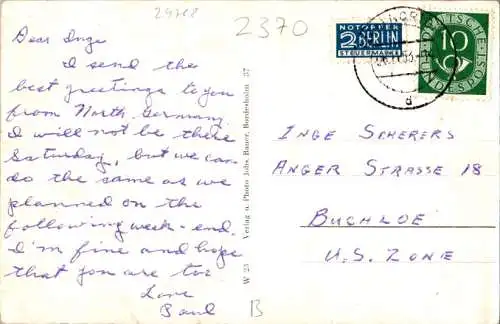 29768
2370
Dear Inge
I send the
best greetings to you
from North Germany
I will not be there
Saturday, but we can
do the same as we
planned on the
following week-end.
I'm fine and hope
that you are too
Love
Paul
W 25 Verlag u. Photo Johs. Bauer, Bordesholm 57
B
NOTOPFER
2 BERLIN
STEUERMARKE
DEUTSCHE
10
BUNDESPOST
d
INGE SCHERERS
ANGER STRASSE 18
BUCHLOE
U.S. ZONE